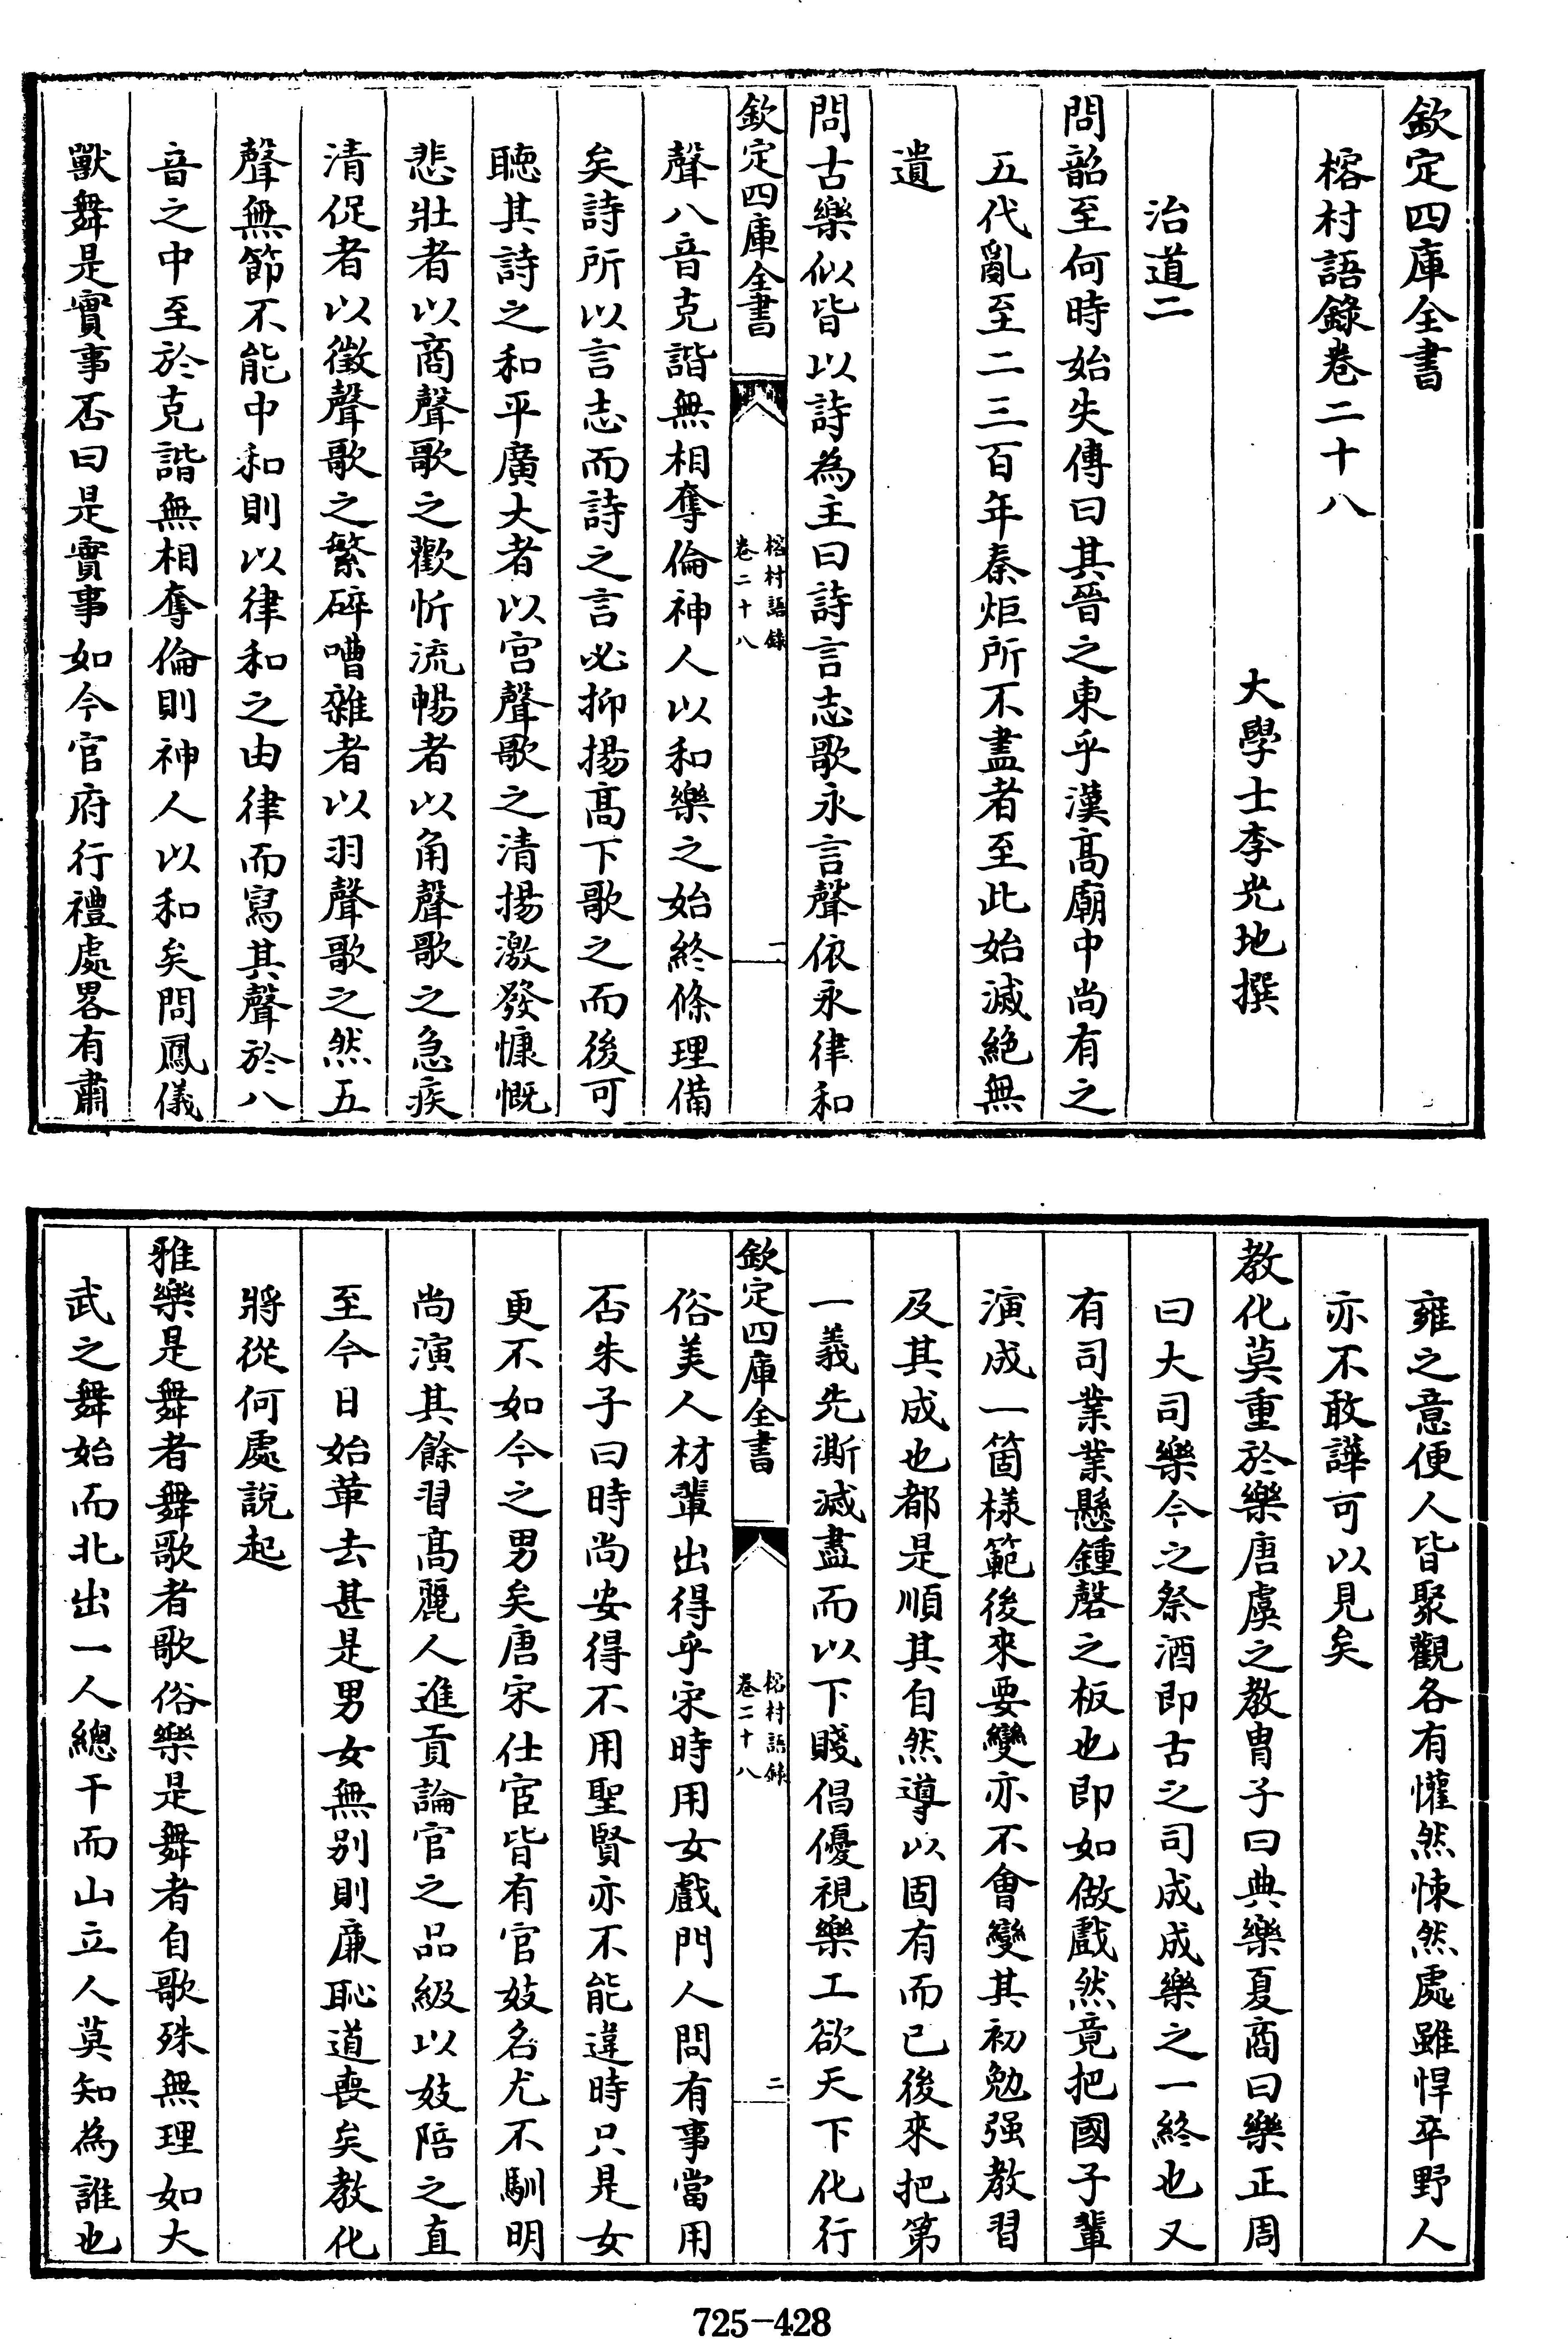 欽定四庫全書
榕村語錄卷二十八
大學士李光地撰
治道二
問韶至何時始失傳曰其晉之東乎漢髙廟中尚有之
五代亂至二三百年秦炬所不盡者至此始滅絶無
遺
問古樂似皆以詩為主曰詩言志歌永言聲依永律和
欽定四庫全書
榕村語錄
卷二十八
一
聲八音克諧無相奪倫神人以和樂之始終條理備
矣詩所以言志而詩之言必抑揚髙下歌之而後可
聴其詩之和平廣大者以宫聲歌之清揚激發慷慨
悲壯者以商聲歌之歡忻流暢者以角聲歌之急疾
清促者以徵聲歌之繁碎嘈雜者以羽聲歌之然五
聲無節不能中和則以律和之由律而寫其聲於八
音之中至於克諧無相奪倫則神人以和矣問鳳儀
獸舞是實事否曰是實事如今官府行禮處畧有肅
雍之意便人皆聚觀各有懽然悚然處雖悍卒野人
亦不敢譁可以見矣
教化莫重於樂唐虞之教胄子曰典樂夏商曰樂正周
曰大司樂今之祭酒即古之司成成樂之一終也又
有司業業懸鍾磬之板也即如做戲然竟把國子輩
演成一箇様範後來要變亦不會變其初勉强教習
及其成也都是順其自然導以固有而已後來把第
一義先澌滅盡而以下賤倡優視樂工欲天下化行
欽定四庫全書
榕村語錄
卷二十八
二
俗美人材輩出得乎宋時用女戲門人問有事當用
否朱子曰時尚安得不用聖賢亦不能違時只是女
更不如今之男矣唐宋仕宦皆有官妓名尤不馴明
尚演其餘習髙麗人進貢論官之品級以妓陪之直
至今日始革去甚是男女無别則亷恥道喪矣教化
將從何處說起
雅樂是舞者舞歌者歌俗樂是舞者自歌殊無理如大
武之舞始而北出一人總干而山立人莫知為誰也
725-428